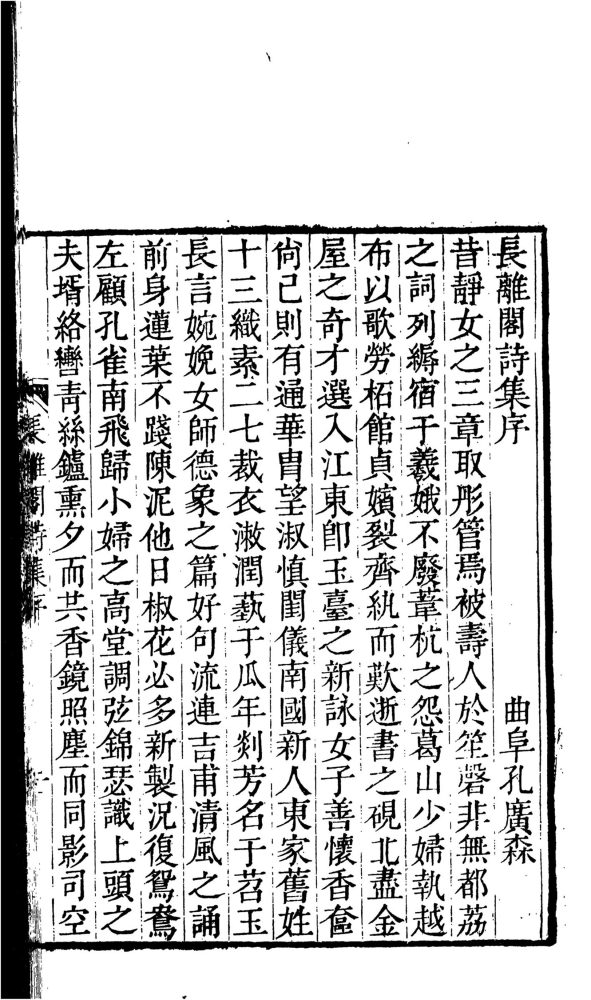 長離閣詩集序
曲阜孔廣森
昔靜女之三章取彤管焉被壽人於笙磬非無都荔
之詞列縟宿于羲娥不廢葦杭之怨葛山少婦執越
布以歌勞柘館貞嬪裂齊紈而歎逝書之硯北盡金
屋之奇才選入江東卽玉臺之新詠女子善懷香奩
尙已則有通華胄望淑慎閨儀南國新人東家舊姓
十三織素二七裁衣漱潤蓺于瓜年剡芳名于苕玉
長言婉娩女師德象之篇好句流連吉甫清風之誦
前身蓮葉不踐陳泥他日椒花必多新製況復鴛鴦
左顧孔雀南飛歸小婦之高堂調弦錦瑟識上頭之
夫壻絡轡靑絲鑪熏夕而共香鏡照塵而同影司空
長離閣詩集序
一